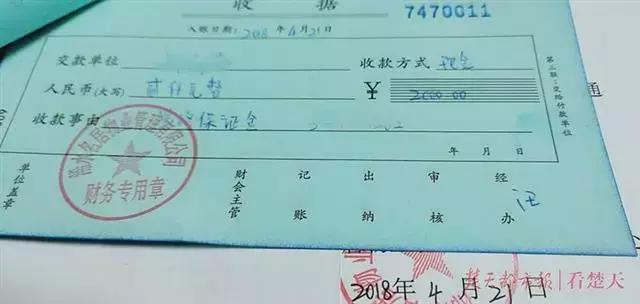 收 据
7470011
入账日期:2018年4月21日
交款单位 收款方式 现金
人民币(大写) 贰仟元整 ¥ 2000.00
收款事由 保证金
年 月 日
第三联:交给付款单位
财务专用章
单位盖章 财会主管 记账 出纳 审核 经办 汪
通
2018年4月21日
楚天都市报|看楚天